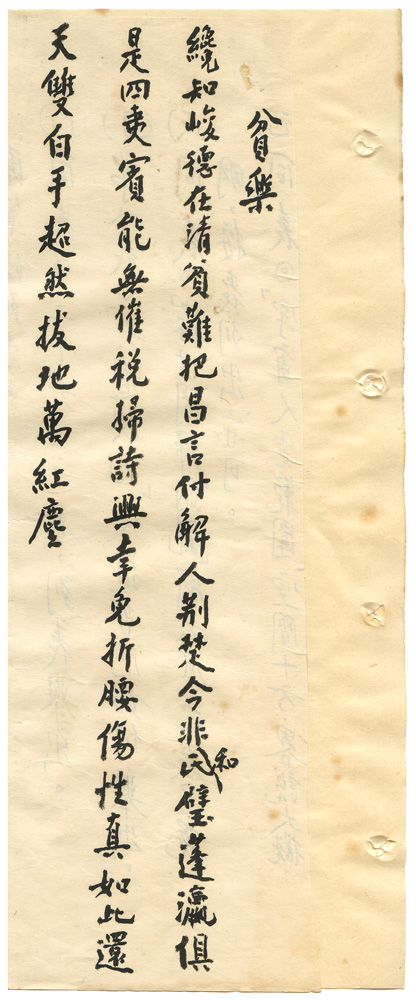 貧樂
纔知峻德在清貧難把昌言付解人荆楚今非和氏璧蓬瀛俱
是四夷賓能無催稅掃詩興幸免折腰傷性真如此還
天雙白手超然拔地萬紅塵